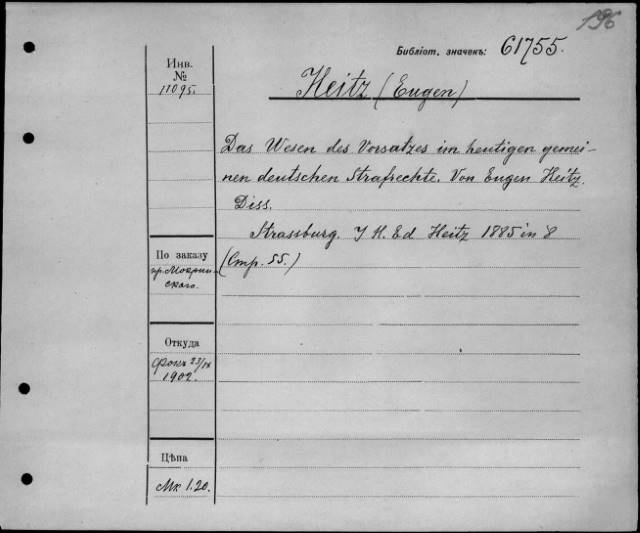 196
Библіот. значекъ: 61755.
Инв.
№
11095.
Heitz (Eugen)
Das Wesen des Vorsatzes im heutigen gemei-
nen deutschen Strafrechte. Von Eugen Heitz.
Diss.
Strassburg. J H. Ed Heitz 1885 in 8
(Стр. 55.)
По заказу
пр. Мокрин-
скаго.
Откуда
Фокъ 23/IX
1902.
Цѣна
Мк 1.20.